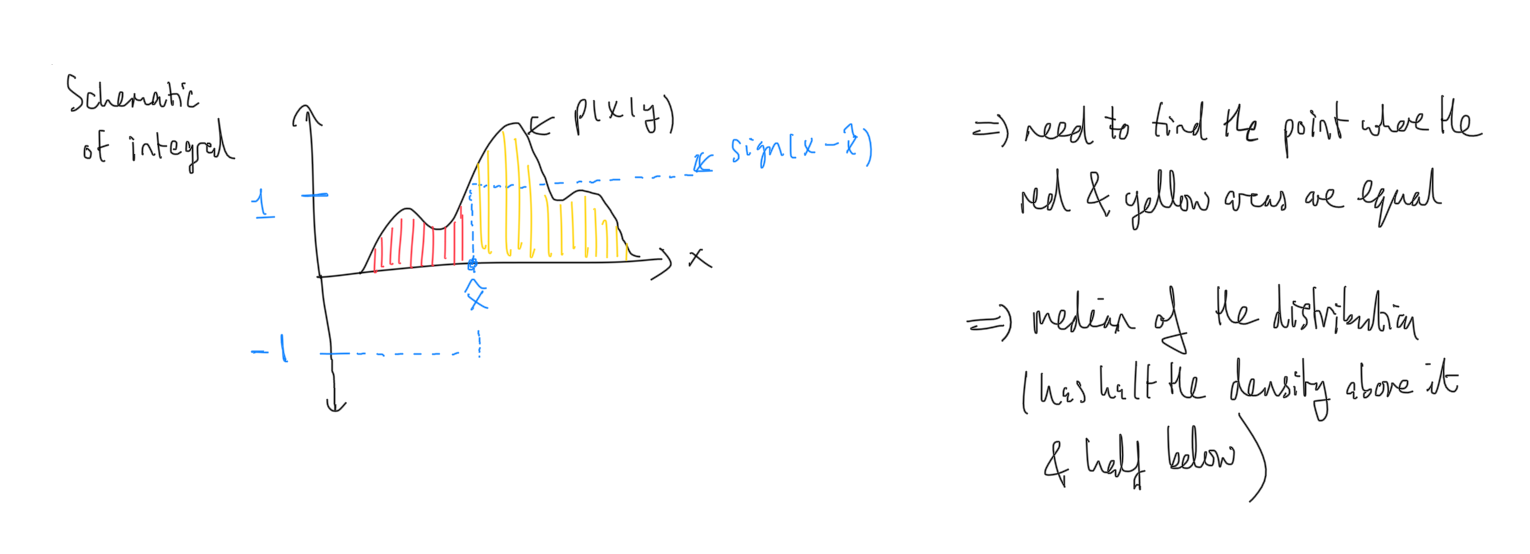 Schematic
of integral
p(x|y)
sign(x-x̂)
1
x
x̂
-1
=> need to find the point where the
red & yellow areas are equal
=> median of the distribution
(has half the density above it
& half below)